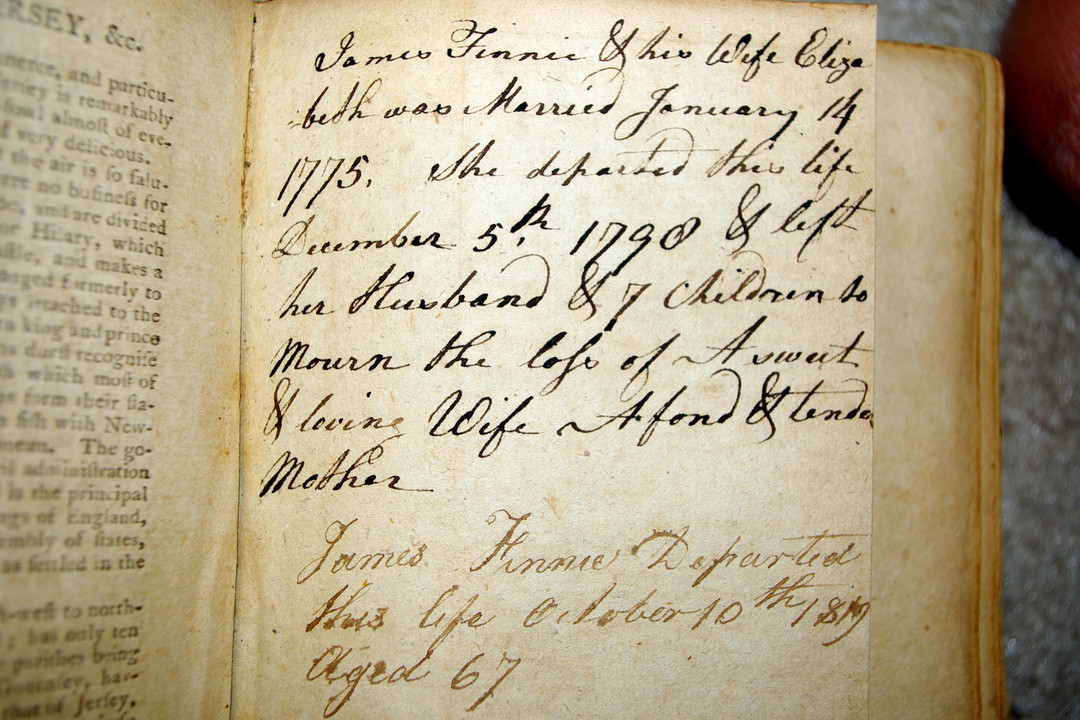 RSEY, &c.
merce, and particu-
ersey is remarkably
almost of eve-
f very delicious.
the air is so salu-
ere no business for
and are divided
or Hilary, which
and makes a
formerly to
attached to the
king and prince
durst recognise
th which most of
as form their sta-
fish with New-
mean. The go-
administration
is the principal
ngs of England,
embly of states,
as settled in the
h-west to north-
; has only ten
parishes being
Guernsey, hav-
that of Jersey,
James Finnie & his Wife Eliza
beth was Married January 14
1775. She departed this life
December 5.th 1798 & left
her Husband & 7 Children to
Mourn the loss of A sweet
& loving Wife A fond & tender
Mother
James Finnie Departed
this life October 10th 1819
Aged 67